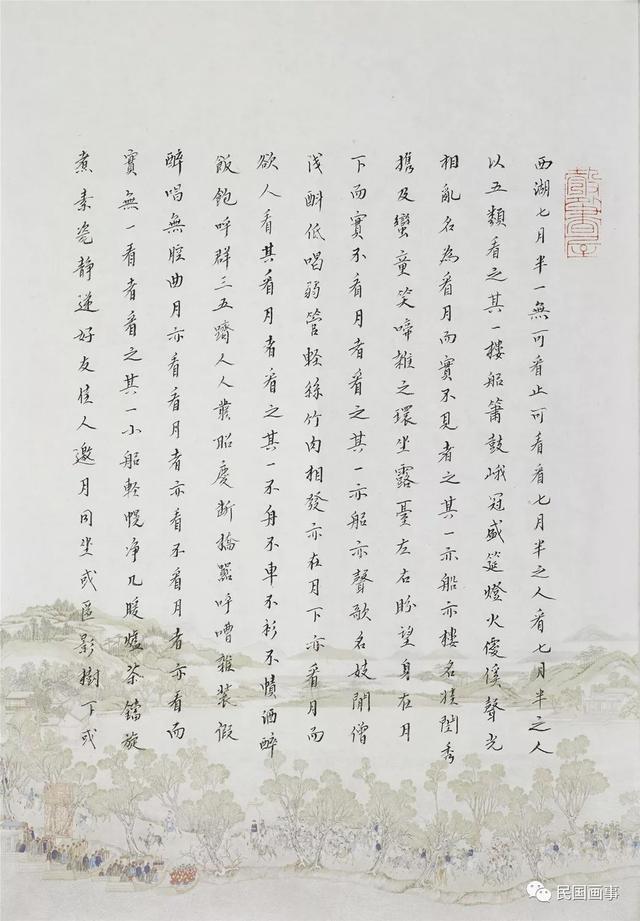 西湖七月半一無可看止可看看七月半之人看七月半之人
以五類看之其一樓船簫鼓峨冠盛筵燈火優傒聲光
相亂名為看月而實不見者之其一亦船亦樓名娃閨秀
攜及孌童笑啼雜之環坐露臺左右盼望身在月
下而實不看月者看之其一亦船亦聲歌名妓閒僧
淺斟低唱弱管輕絲竹肉相發亦在月下亦看月而
欲人看其看月者看之其一不舟不車不衫不幘酒醉
飯飽呼群三五躋人人叢昭慶斷橋嘂呼嘈雜裝假
醉唱無腔曲月亦看看月者亦看不看月者亦看而
實無一看者看之其一小船輕幌淨几暖爐茶鐺旋
煮素瓷靜遞好友佳人邀月同坐或匿影樹下或
民国画事